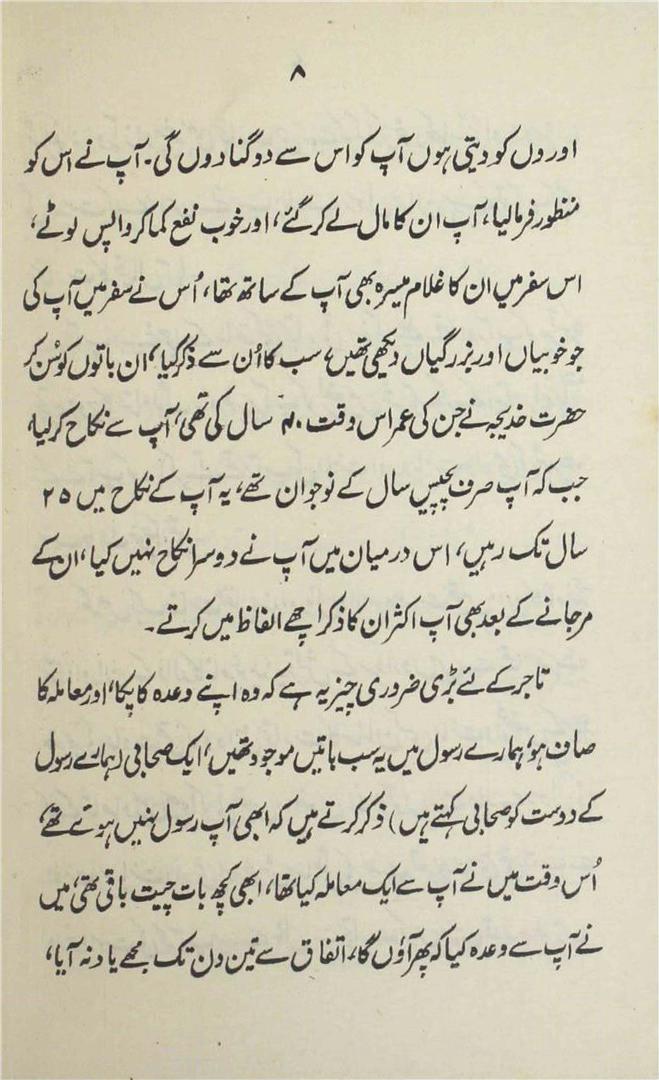 ۸
اوروں کو دیتی ہوں آپ کو اس سے دوگنا دوں گی۔ آپ نے اس کو
منظور فرمالیا، آپ ان کا مال لے کر گئے، اور خوب نفع کما کر واپس لوٹے،
اس سفر میں ان کا غلام میسرہ بھی آپ کے ساتھ تھا، اُس نے سفر میں آپ کی
جو خوبیاں اور بزرگیاں دیکھی تھیں، سب کا اُن سے ذکر کیا، ان باتوں کو سُن کر
حضرت خدیجہ نے جن کی عمر اس وقت ۴۰ سال کی تھی، آپ سے نکاح کر لیا،
جب کہ آپ صرف پچیس سال کے نوجوان تھے، یہ آپ کے نکاح میں ۲۵
سال تک رہیں، اس درمیان میں آپ نے دوسرا نکاح نہیں کیا، ان کے
مر جانے کے بعد بھی آپ اکثر ان کا ذکر اچھے الفاظ میں کرتے۔
تاجر کے لئے بڑی ضروری چیز یہ ہے کہ وہ اپنے وعدہ کا پکا، اور معاملہ کا
صاف ہو، ہمارے رسول میں یہ سب باتیں موجود تھیں، ایک صحابی (ہمارے رسول
کے دوست کو صحابی کہتے ہیں) ذکر کرتے ہیں کہ ابھی آپ رسول نہیں ہوئے تھے،
اُس وقت میں نے آپ سے ایک معاملہ کیا تھا، ابھی کچھ بات چیت باقی تھی، میں
نے آپ سے وعدہ کیا کہ پھر آؤں گا، اتفاق سے تین دن تک مجھے یاد نہ آیا،